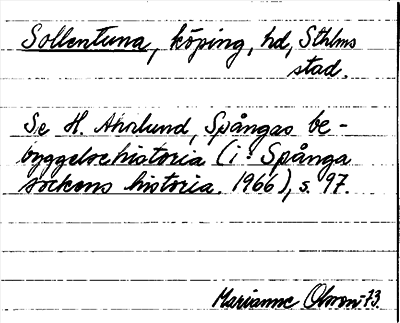 Sollentuna, köping, hd, Sthlms
stad.
Se H. Ahnlund, Spångas be-
byggelsehistoria (i: Spånga
sockens historia. 1966), s. 97.
Marianne Olsson 73